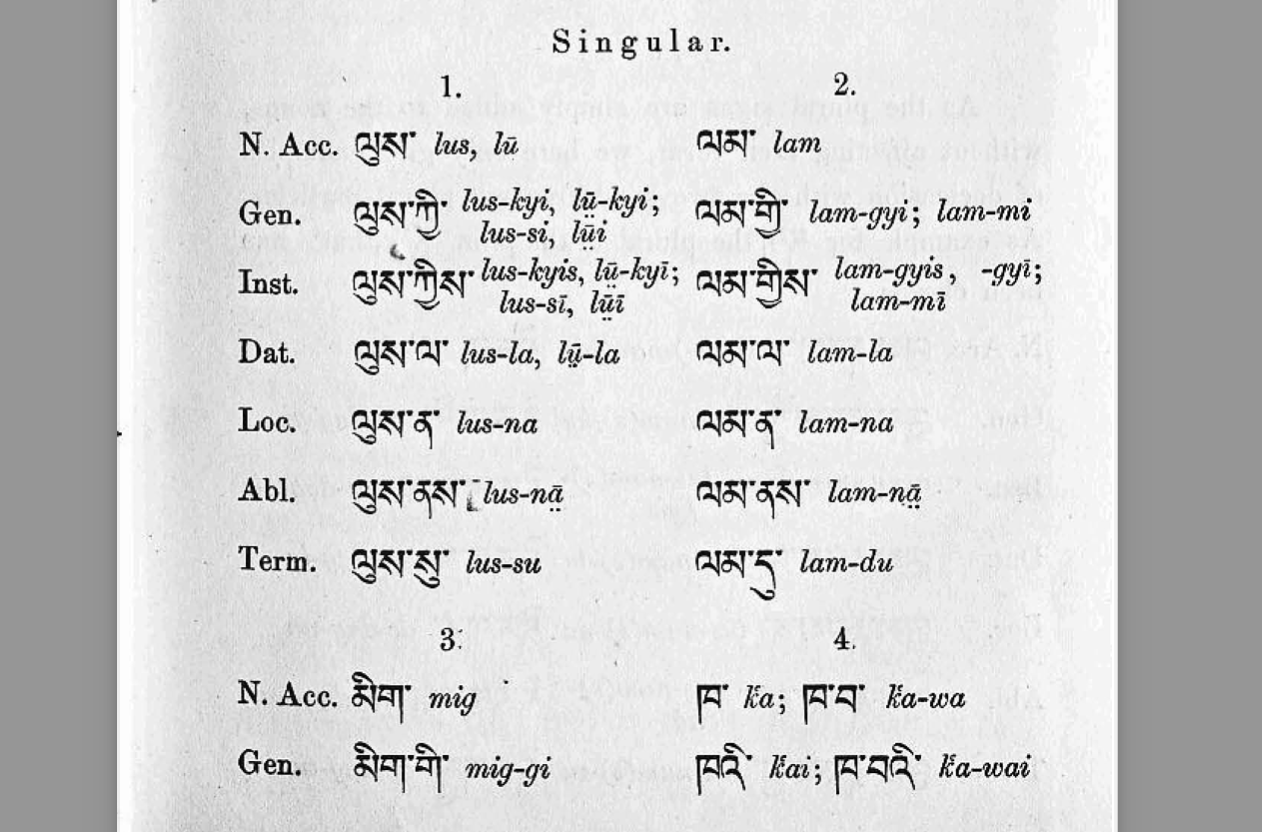 Singular.
1. 2.
N. Acc. ལུས་ lus, lū ལམ་ lam
Gen. ལུས་ཀྱི་ lus-kyi, lṳ̄-kyi; ལམ་གྱི་ lam-gyi; lam-mi
lus-si, lṳ̄i
Inst. ལུས་ཀྱིས་ lus-kyis, lṳ̄-kyī; ལམ་གྱིས་ lam-gyis, -gyī;
lus-sī, lṳ̄ī lam-mī
Dat. ལུས་ལ་ lus-la, lṳ̄-la ལམ་ལ་ lam-la
Loc. ལུས་ན་ lus-na ལམ་ན་ lam-na
Abl. ལུས་ནས་ lus-nā̤ ལམ་ནས་ lam-nā̤
Term. ལུས་སུ་ lus-su ལམ་དུ་ lam-du
3. 4.
N. Acc. མིག་ mig ཁ་ k̔a; ཁ་བ་ k̔a-wa
Gen. མིག་གི་ mig-gi ཁའི་ k̔ai; ཁ་བའི་ k̔a-wai